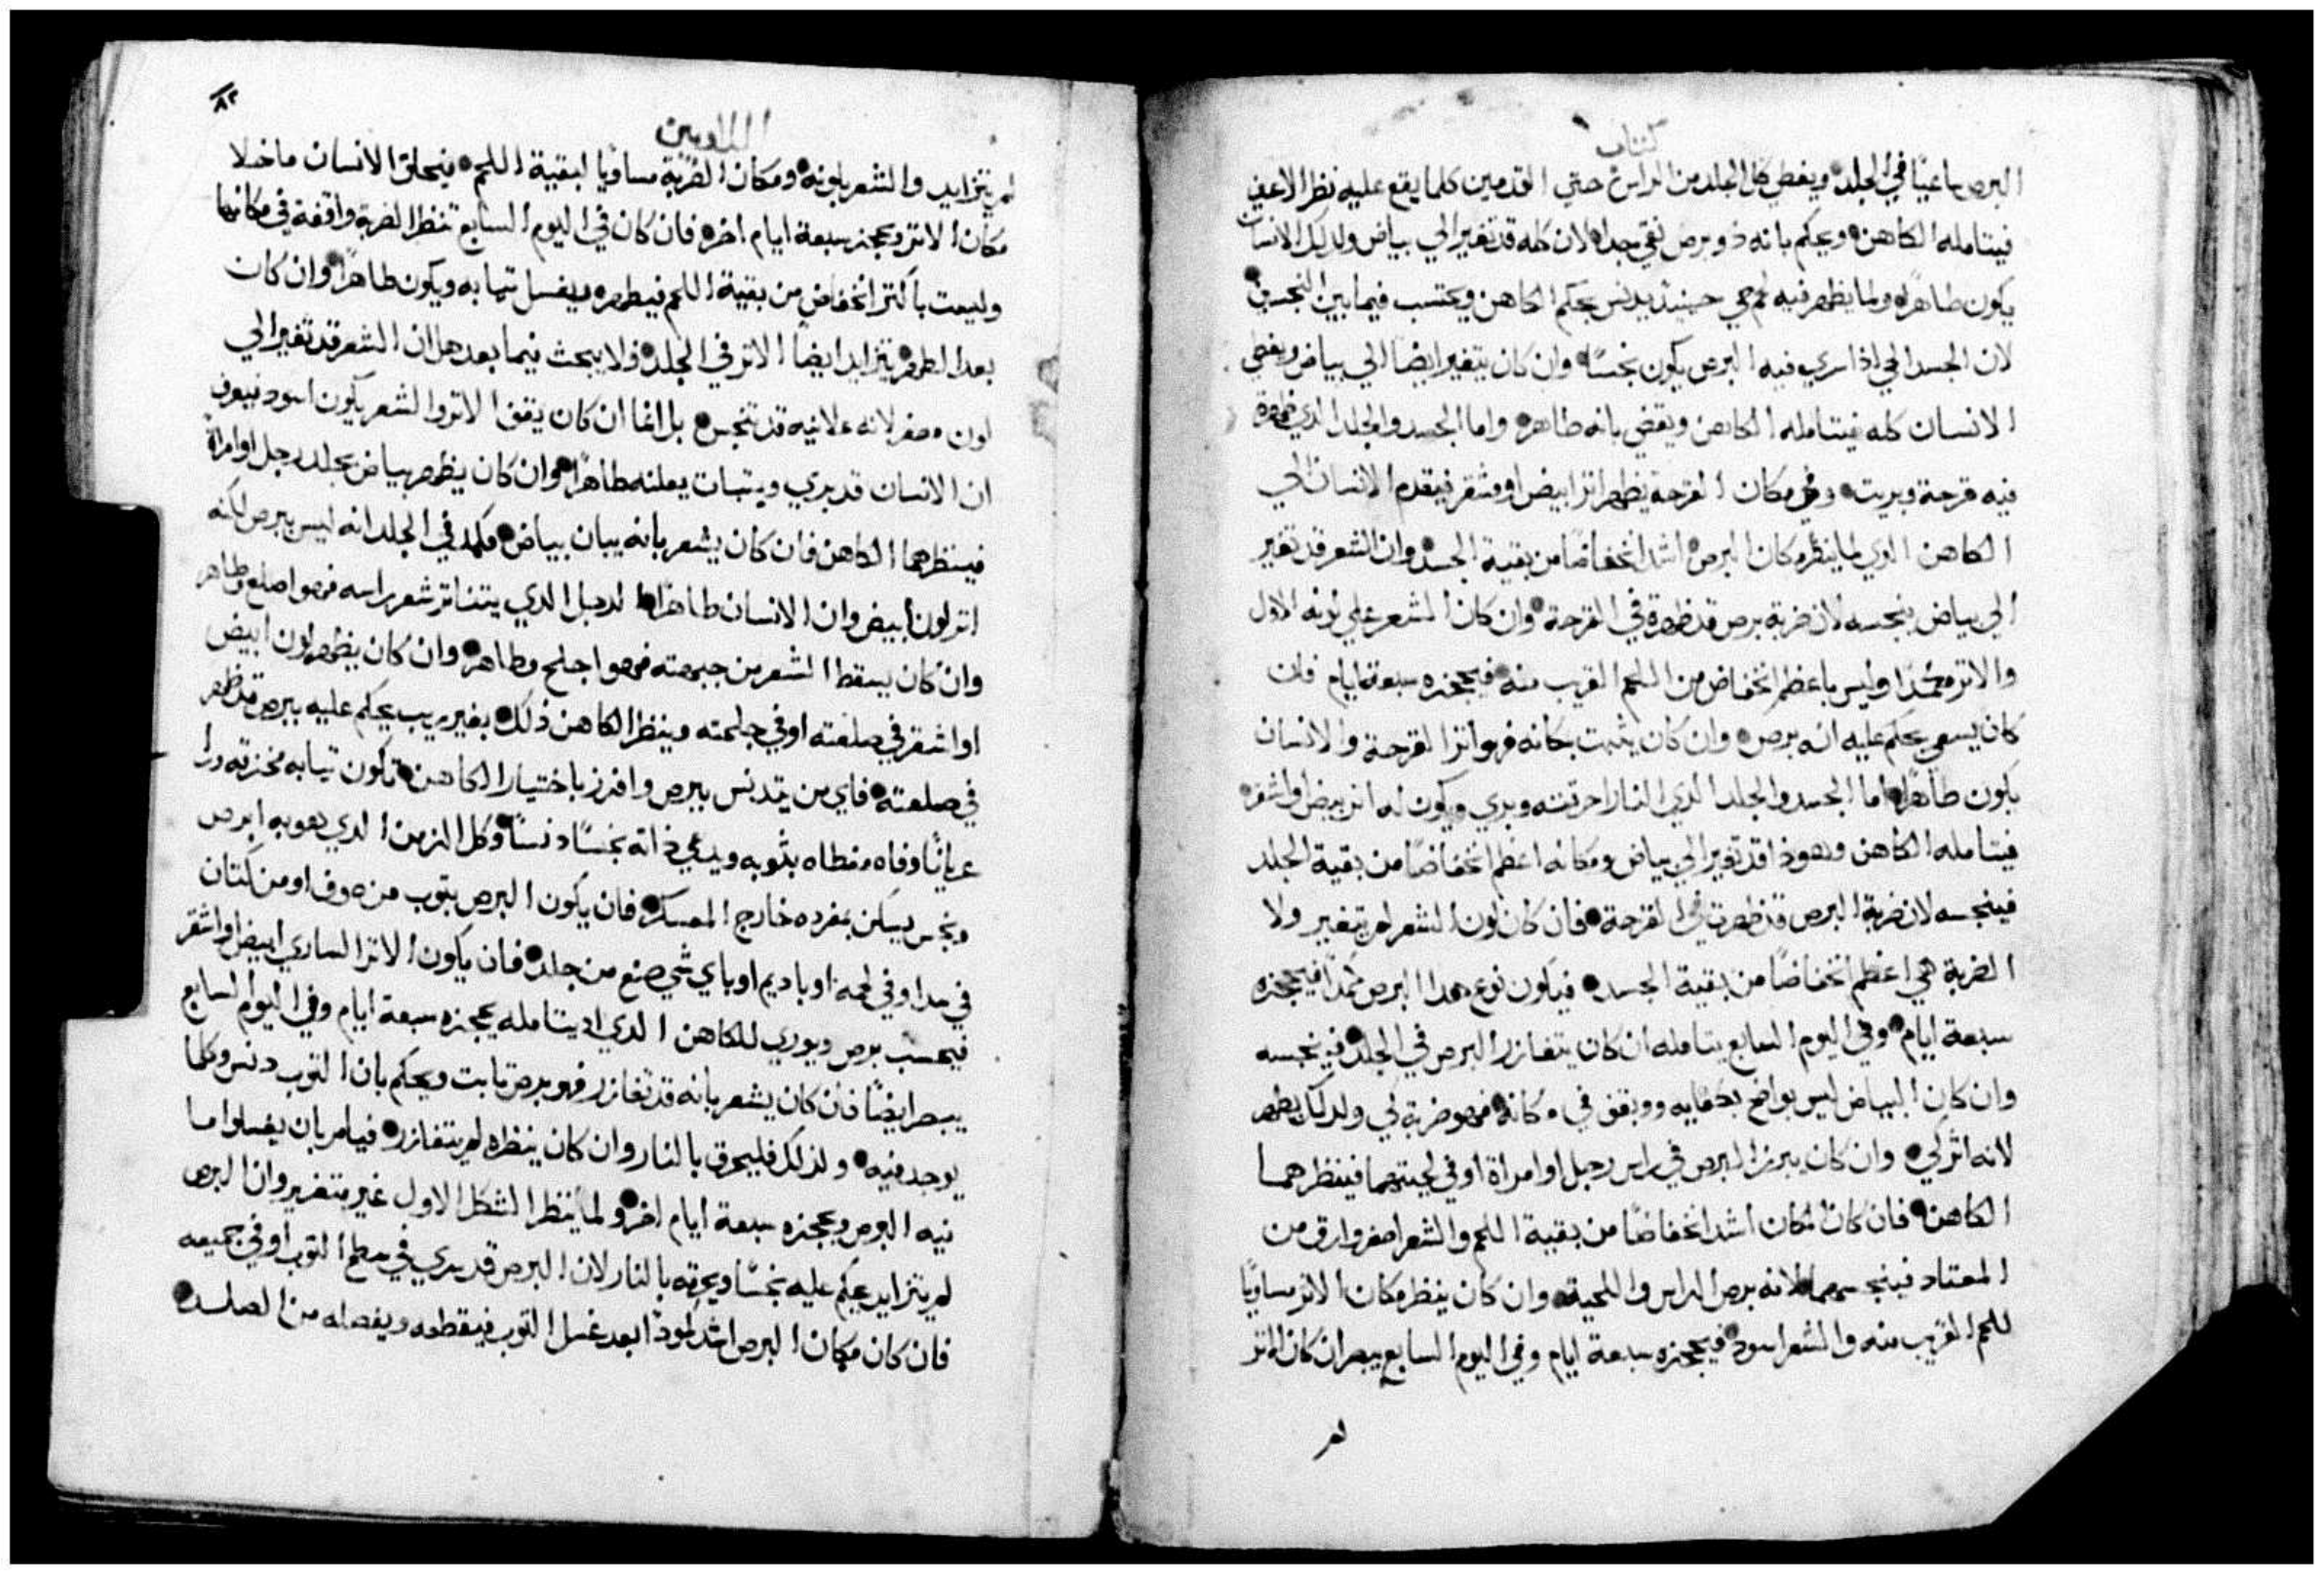 كتاب
البرص ساعيًا في الجلد ويغطي كل الجلد من الراس حتي القدمين كلما يقع عليه نظر الاعين
فيتامله الكاهن ويحكم بانه ذو برص نقي جدا لان كله قد تغير الي بياض ولدلك الانسان
يكون طاهرًا ولما يظهر فيه لحم حي حينيذ يدنس بحكم الكاهن ويحتسب فيما بين النجسين
لان الجسد الحي اذا سري فيه البرص يكون نجسًا وان كان يتغير ايضا الي بياض ويغطي
الانسان كله فيتامله الكاهن ويقضي بانه طاهر واما الجسد والجلد الدي ظهرة
فيه قرحة وبريت وفي مكان القرحة يظهر اثر ابيض او مشقر فيقدم الانسان الي
الكاهن الدي لما ينظر مكان البرص اشد انخفاضًا من بقية الجسد وان الشعر قد تغير
الي بياض ينجسه لان ضربة برص قد ظهرة في القرحة وان كان الشعر علي لونه الاول
والاثر مكمدًا وليس باعظم انخفاض من اللحم القريب منه فيحجزه سبعة ايام فان
كان يسعي يحكم عليه انه برص وان كان يثبت مكانه فهو اثر القرحة والانسان
يكون طاهرًا اما الجسد والجلد الدي النار احرقته وبري ويكون له اثر ابيض او اشقر
فيتامله الكاهن وهوذا قد تغير الي بياض ومكانه اعظم انخفاضًا من بقية الجلد
فينجسه لان ضربة البرص قد ظهرت في القرحة فان كان لون الشعر لم يتغير ولا
الضربة هي اعظم انخفاضًا من بقية الجسد فيكون نوع هدا البرص مكمدًا فيحجزه
سبعة ايام وفي اليوم السابع يتامله ان كان يتغازر البرص في الجلد فينجسه
وان كان البياض ليس بواضح بكفايه ووقف في مكانه فهو ضربة كي ولدلك يطهر
لانه اثر كي وان كان يبرز البرص في راس رجل او امراة او في لحيتهما فينظرهما
الكاهن فان كان المكان اشد انخفاضًا من بقية اللحم والشعر اصفر وارق من
المعتاد فينجسهما لانه برص الراس واللحية وان كان ينظر مكان الاثر مساويًا
للحم القريب منه والشعر اسود فيحجزه سبعة ايام وفي اليوم السابع يبصر ان كان الاثر
لم
٨٢
اللاويين
لم يتزايد والشعر بلونه ومكان الضربة مساويا لبقية اللحم فيحلق الانسان ماخلا
مكان الاثر ويحجز سبعة ايام اخر فان كان في اليوم السابع تنظر الضربة واقفة في مكانها
وليست باكثر انخفاض من بقية اللحم فيطهره ويغسل ثيابه ويكون طاهرًا وان كان
بعد الطهر يتزايد ايضًا الاثر في الجلد فلا يبحث فيما بعد هل ان الشعر قد تغير الي
لون مصفر لانه علانيه قد تنجس بل انما ان كان يقف الاثر والشعر يكون اسود فيعرف
ان الانسان قد بري وبثبات يعلنه طاهرًا وان كان يظهر بياض بجلد رجل او امراة
فينظرهما الكاهن فان كان يشعر بانه يبان بياض مكمد في الجلد انه ليس ببرص لكنه
اثر لون ابيض وان الانسان طاهرًا الرجل الدي يتناثر شعر راسه فهو اصلع وطاهر
وان كان يسقط الشعر من جبهته فهو اجلح وطاهر وان كان يظهر لون ابيض
او اشقر في صلعته او في جلحته وينظر الكاهن ذلك بغير ريب يحكم عليه ببرص قد ظهر
في صلعته فاي من يتدنس ببرص وافرز باختيار الكاهن تكون ثيابه مخزقه وراسه
عريانًا وفاه مغطاه بثوبه ويدعي ذاته نجسًا دنسًا وكل الزمن الدي هو به ابرص
ونجس يسكن بمفرده خارج المعسكر فان يكون البرص بثوب من صوف او من كتان
في سدا وفي لحمة او باديم او باي شي صنع من جلد فان يكون الاثر الساري ابيض او اشقر
فيحسب برص ويوري للكاهن الدي اد يتامله يحجزه سبعة ايام وفي اليوم السابع
يبصر ايضًا فان كان يشعر بانه قد تغازر فهو برص ثابت ويحكم بان الثوب دنس وكلما
يوجد فيه ولذلك فليحرق بالنار وان كان ينظره لم يتغازر فيامر بان يغسلوا ما
فيه البرص ويحجزه سبعة ايام اخر ولما ينظر الشكل الاول غير متغير وان البرص
لم يتزايد يحكم عليه نجسًا ويحرقه بالنار لان البرص قد سري في سطح الثوب او في جميعه
فان كان مكان البرص اشد كمودًا بعد غسل الثوب فيقطعه ويفصله من الصلد